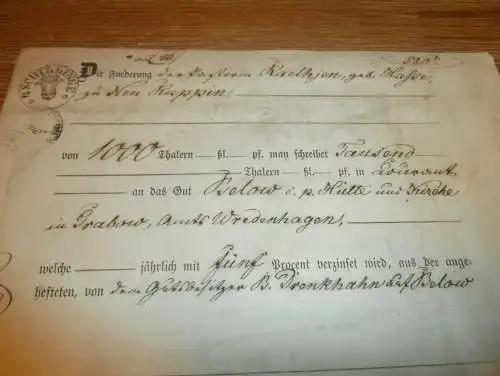 Die Forderung der Pastorin Kaehtjen, geb. Hasse,
zu Neu Ruppin
von 1000 Thalern — ßl. — pf. man schreibet Tausend
Thalern — ßl. — pf. in Courant
an das Gut Below c. p. Hütte und Kirche
in Grabow, Amts Wredenhagen,
welche — jährlich mit fünf Procent verzinset wird, aus der ange-
hefteten, von dem Gutsbesitzer B. Drenkhahn auf Below